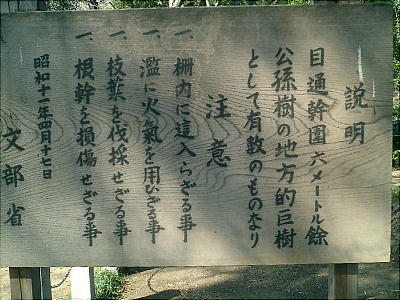 説明
目通幹圍六メートル餘
公孫樹の地方的巨樹
として有數のものなり
注意
一、柵内に這入らざる事
一、濫に火氣を用ひざる事
一、枝葉を伐採せざる事
一、根幹を損傷せざる事
昭和十一年四月十七日
文部省